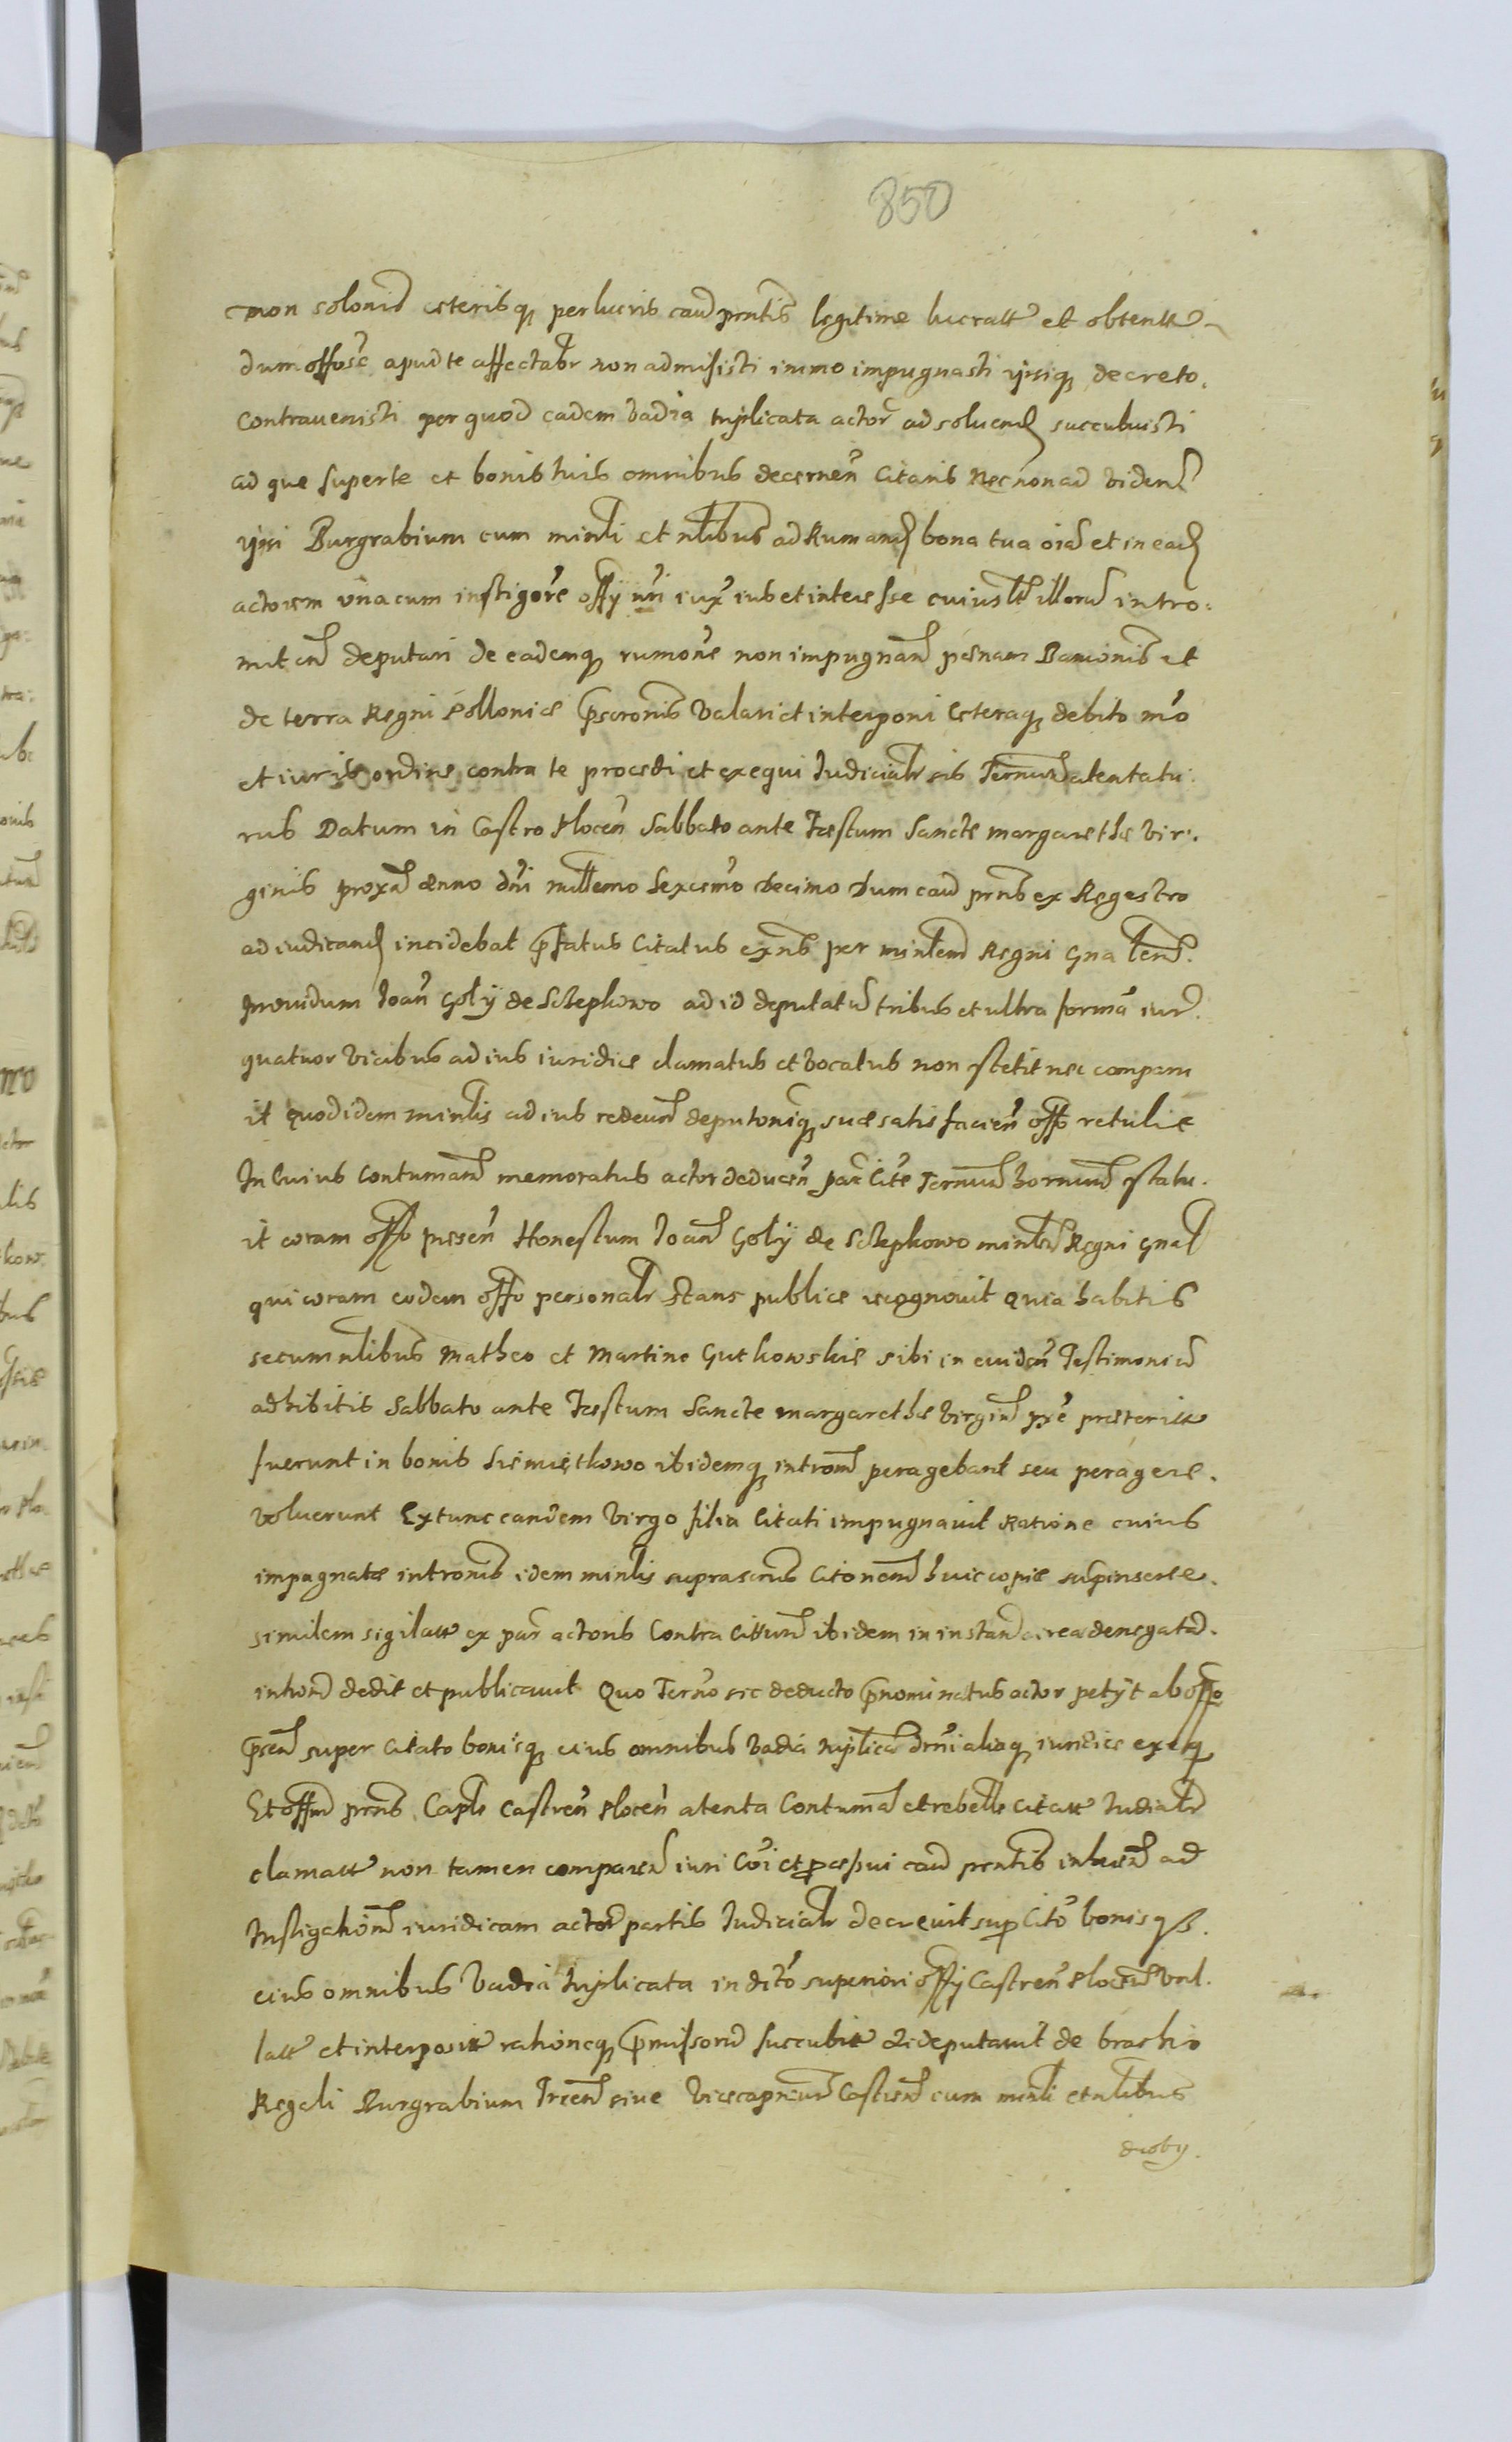 850
non solonis ceterisq perlucris caus prntis legitime lucratt et obtentt
dum offose apud te affectabr non admisisti immo impugnasti ipsiq decreto.
contravenisti per quod eadem vadia triplicata actor ad solvend succubuisti
ad que super te et bonis tuis omnibus decernen citaris Necnon ad videnl
ipsi Burgrabium cum minli et nlibus ad Rumand bona tua oia et in ead
actorem una cum instigore offij nri iux iubet interesse cuiuslt illorum intro:
mitend deputari de eademq rumone non impugnand penam Banionis et
de terra Regni Pollonie pscronis valari et interponi ceteraq debito mo
et iuris ordine contra te procedi et exequi Judicialr sis Ternum atentatu:
rus Datum in Castro Plocen Sabbato ante Faestum Sancte margarethae vir:
ginis proxa anno dni millemo Sexcemo decimo dum caus prns ex Regestro
adiudicand incidebat pfatus Citatus exns per minlem Regni Gnalem.
providum Joan Goly de Sclepkowo ad id deputatu tribus et ultra forma iur.
quatuor vicibus ad ius iuridice clamatus et vocatus non stetit nec comparu
it quod idem minlis ad ius redeund deputoniq sue satisfacien offo retulit
In Cuius Contumam memoratus actor deducen par Cite Ternum hornum statu.
it coram offo presen Honestum Joan Goly de Sclepkowo minlem Regni Gnal
qui coram eodem offo personalr stans publice recognovit Quia habitis
secum nlibus Matheo et Martino Gutkowskie sibi in eviden Testimoniu
adhibitis Sabbato ante Faestum Sancte margarethae Virgin pxe praeteritt
fuerunt in bonis Siemiętkowo ibidemq introm peragebant seu peragere.
voluerunt Extunc eandem Virgo filia Citati impugnavit Ratione cuius
impugnatae intronis idem minlis suprascrus Citonem huic copie supinserte.
similem sigilatt ex par actoris Contra Cittum ibidem in instan circa denegatam.
introm dedit et publicavit Quo Terno sic deducto pnominatus actor petijt ab offo
psen super Citato bonisq eius omnibus vadia triplicta drni aliaq iuridice exeq
Et offm prns Capls Castren Plocen atenta Contuma et rebelle citatt Judialr
clamatt non tamen comparen iuri Coi et pcepui caus prntis inheren ad
Instigationem iuridicam actor partis Judicialr decrevit sup Cito bonisqs.
eius omnibus vadia triplicata in dito superiori offij Castren Plocen val.
latt et interpositt rationeq pmissoru succubitt Et deputavit de brachio
Regali Burgrabium Trcen sive vicecapneum Castren cum minli et nlibus
duoby.